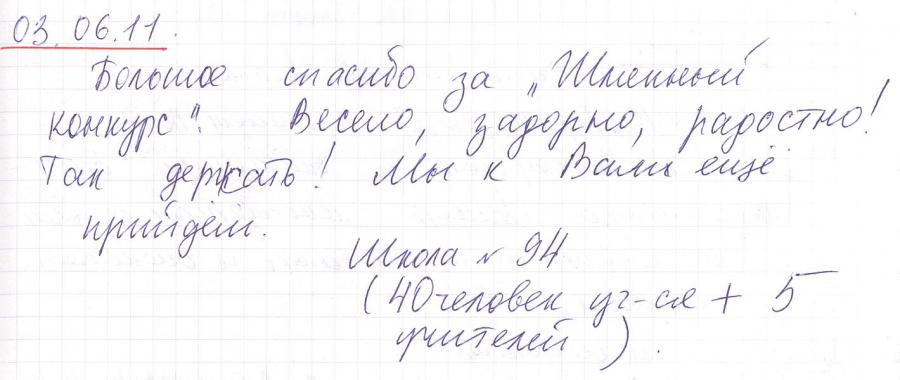 03.06.11.
Большое спасибо за „Шляпный
конкурс“. Весело, задорно, радостно!
Так держать! Мы к Вам ещё
прийдём.
Школа № 94
(40 человек уч-ся + 5
учителей).